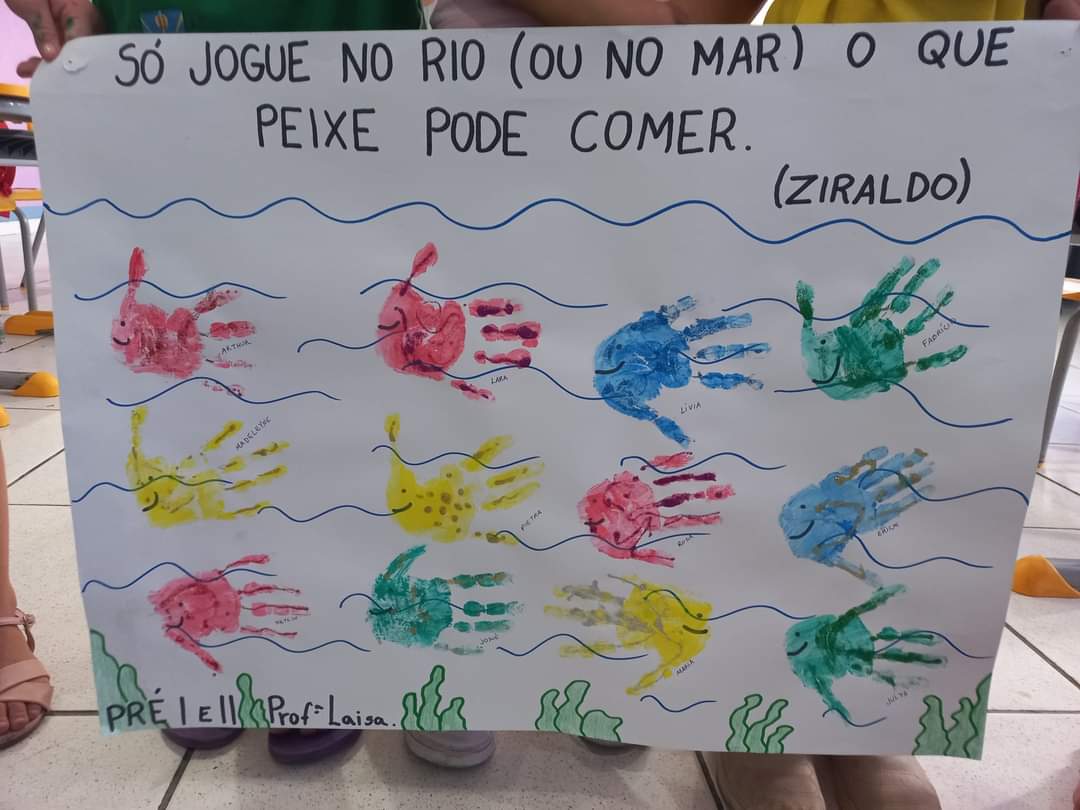 SÓ JOGUE NO RIO (OU NO MAR) O QUE
PEIXE PODE COMER.
(ZIRALDO)
ARTHUR
LARA
LÍVIA
FABRÍCIO
MADELEYNE
PIETRA
JOSÉ
MARIA
JULYA
PRÉ I E II Profª Laisa.